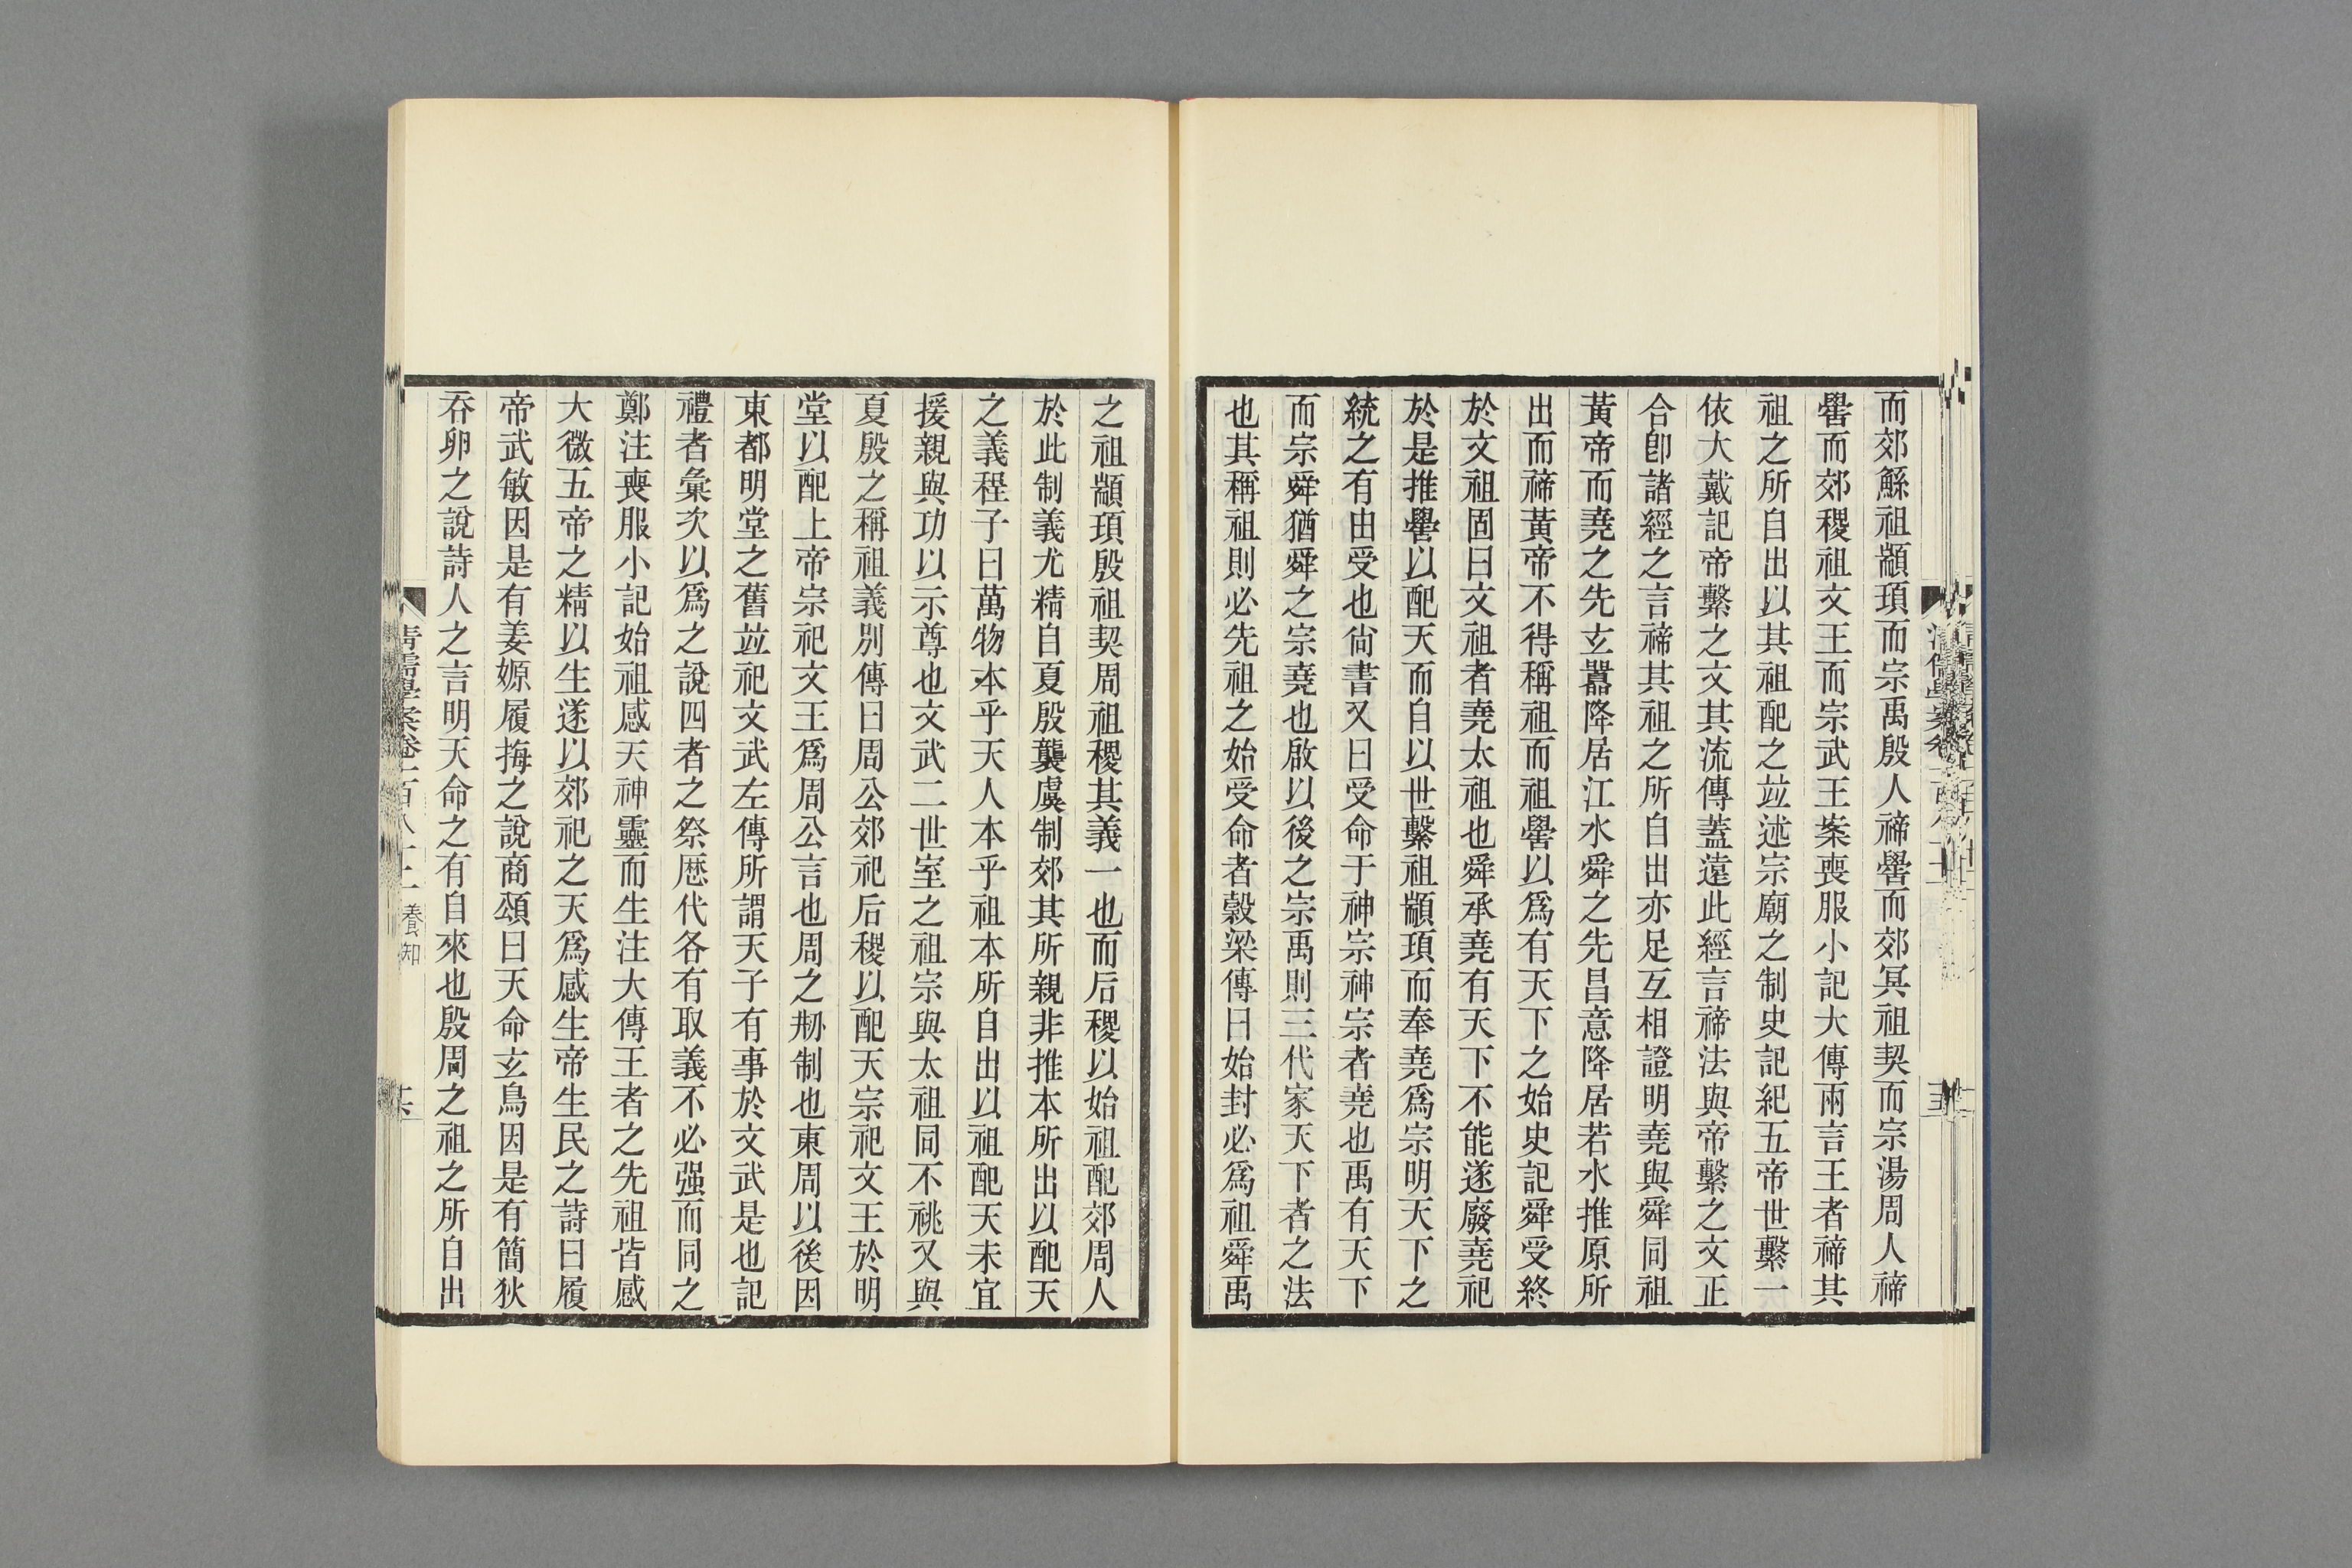 而郊鯀祖顓頊而宗禹殷人禘嚳而郊冥祖契而宗湯周人禘
嚳而郊稷祖文王而宗武王案喪服小記大傳兩言王者禘其
祖之所自出以其祖配之竝述宗廟之制史記紀五帝世繫一
依大戴記帝繫之文其流傳蓋遠此經言禘法與帝繫之文正
合卽諸經之言禘其祖之所自出亦足互相證明堯與舜同祖
黃帝而堯之先玄囂降居江水舜之先昌意降居若水推原所
出而禘黃帝不得稱祖而祖嚳以爲有天下之始史記舜受終
於文祖固曰文祖者堯太祖也舜承堯有天下不能遂廢堯祀
於是推嚳以配天而自以世繫祖顓頊而奉堯爲宗明天下之
統之有由受也尙書又曰受命于神宗神宗者堯也禹有天下
而宗舜猶舜之宗堯也啟以後之宗禹則三代家天下者之法
也其稱祖則必先祖之始受命者穀梁傳曰始封必爲祖舜禹
之祖顓頊殷祖契周祖稷其義一也而后稷以始祖配郊周人
於此制義尤精自夏殷襲虞制郊其所親非推本所出以配天
之義程子曰萬物本乎天人本乎祖本所自出以祖配天未宜
援親與功以示尊也文武二世室之祖宗與太祖同不祧又與
夏殷之稱祖義別傳曰周公郊祀后稷以配天宗祀文王於明
堂以配上帝宗祀文王爲周公言也周之刱制也東周以後因
東都明堂之舊竝祀文武左傳所謂天子有事於文武是也記
禮者彙次以爲之說四者之祭歷代各有取義不必强而同之
鄭注喪服小記始祖感天神靈而生注大傳王者之先祖皆感
大微五帝之精以生遂以郊祀之天爲感生帝生民之詩曰履
帝武敏因是有姜嫄履拇之說商頌曰天命玄鳥因是有簡狄
吞卵之說詩人之言明天命之有自來也殷周之祖之所自出
清儒學案卷一百八十二 養知